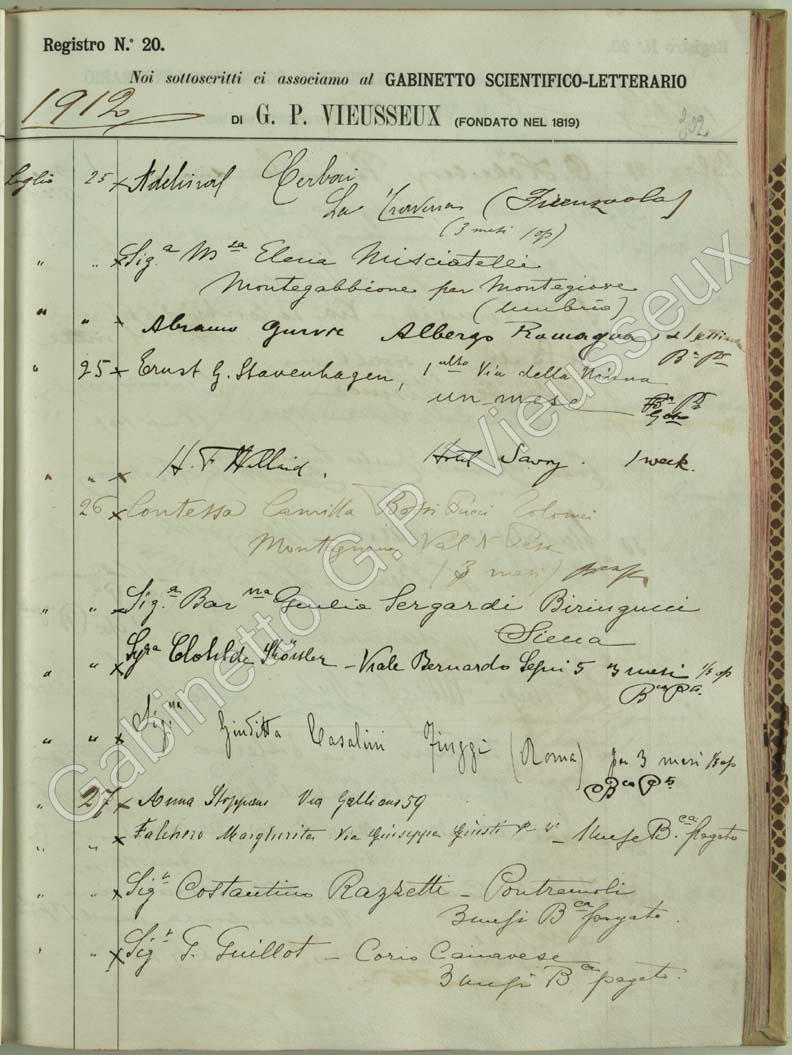 Registro N.° 20.
Noi sottoscritti ci associamo al GABINETTO SCIENTIFICO-LETTERARIO
1912
DI G. P. VIEUSSEUX (FONDATO NEL 1819)
302
Luglio 25 x Cerboni
La Traversa (Firenzuola)
(3 mesi 1 op)
" " x Sig.a Mssa Elena Misciatelli
Montegabbione per Montegiove
(Umbria)
" " x Abramo Albergo Romagna
Ba Pta
" 25 x Ernst G. Stavenhagen, 1 Via della Ninna
un mese Ba Pta
" " x H. F. Hotel Savoy. 1 week.
26 x Contessa Camilla Pucci Tolomei
Val d'
(3 mesi)
" " x Sig.a Bar.na Giulia Sergardi Biringucci
Siena
" " x Sigra Clotilde - Viale Bernardo Segni 5 3 mesi 1/3 op
Bca Pa.
" " x Sig.na Giuditta Casalini Fiuggi (Roma) per 3 mesi 1/3 op
Bca Pa
" 27 x Anna Stoppani Via 59
" " x Falchero Margherita Via Giuseppe Giusti - 1 mese B.ca pagato
" " x Sigr Costantino Razzetti - Pontremoli
3 mesi Bca pagato.
" " x Sigr F. Guillot - Corio Canavese
3 mesi Bca pagato.
Gabinetto G.P. Vieusseux